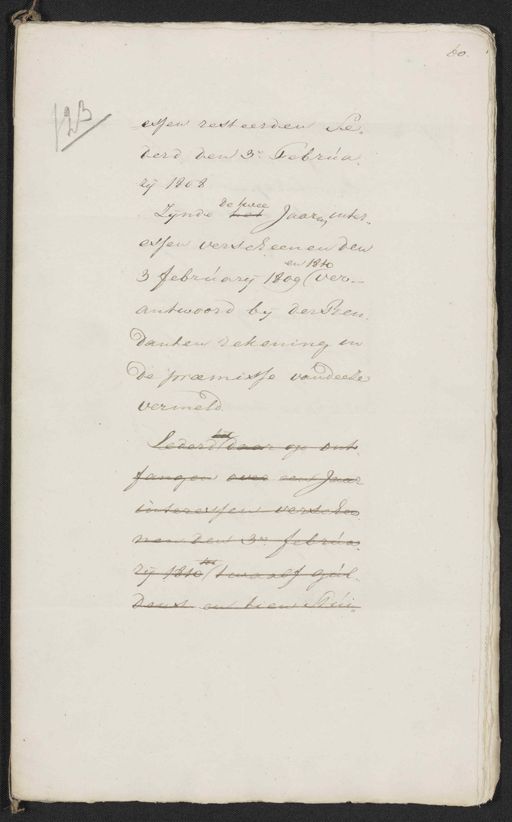 60.
123
essen resteerden Se,
derd den 3e Februa,
rij 1808
Zijnde de twee het Jaaren, inter,
essen verscheenen den
3 februarij 1809 en 1810 (ver,
antwoord bij der Ren,
danten rekening in
de præmisse van deeze
vermeld
Sederd daar op ont,
fangen over een Jaar
interessen versche,
nen den 3e februa,
rij 1810 twaalf gul,
dens en tien stui,